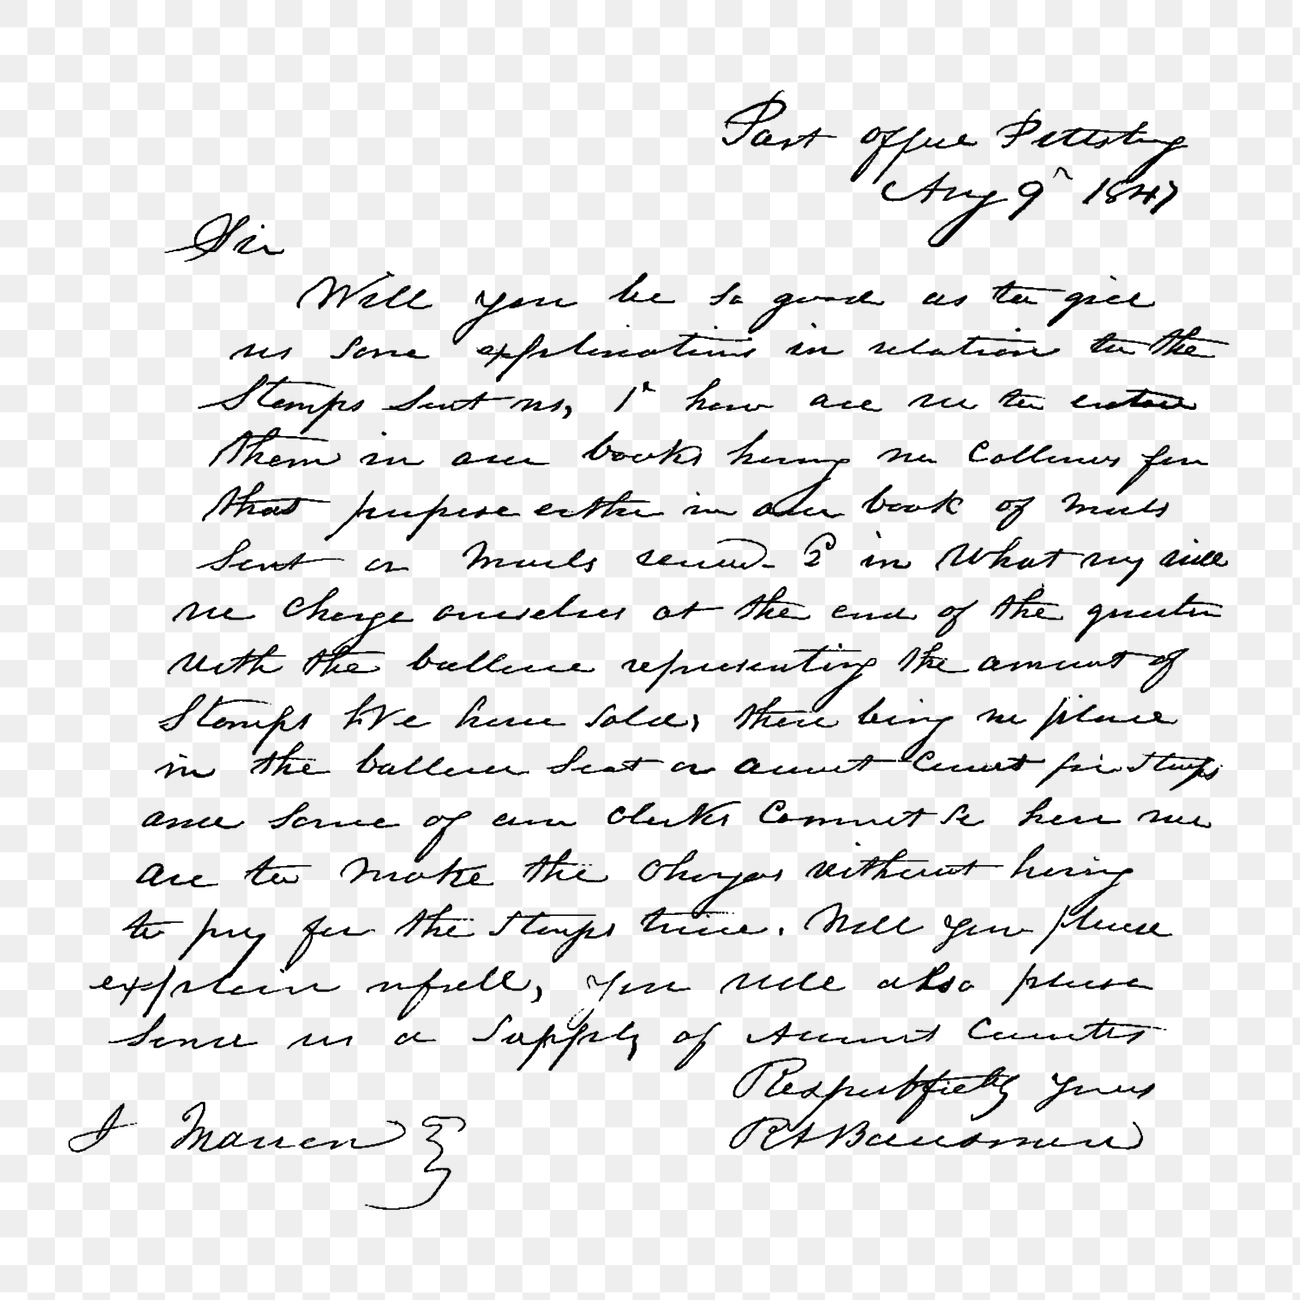 Post office Pittsburg
Aug 9th 1847
Sir
Will you be so good as to give
us some explinations in relation to the
Stamps sent us, 1st how are we to enter
them in our books having no Collums for
that purpose either in our book of mails
sent or Mails received. 2 in What way will
we charge ourselves at the end of the quarter
with the ballance representing the amount of
Stamps We have sold, there being no place
in the ballance Sheet or account Current for stamps
and some of our Clerks Cannot se how we
are to make the charges without having
to pay for the stamps twice. Will you please
explain usfull, you will also please
send us a supply of account Currents
Respectfully yours
R A Bausman
J Marron